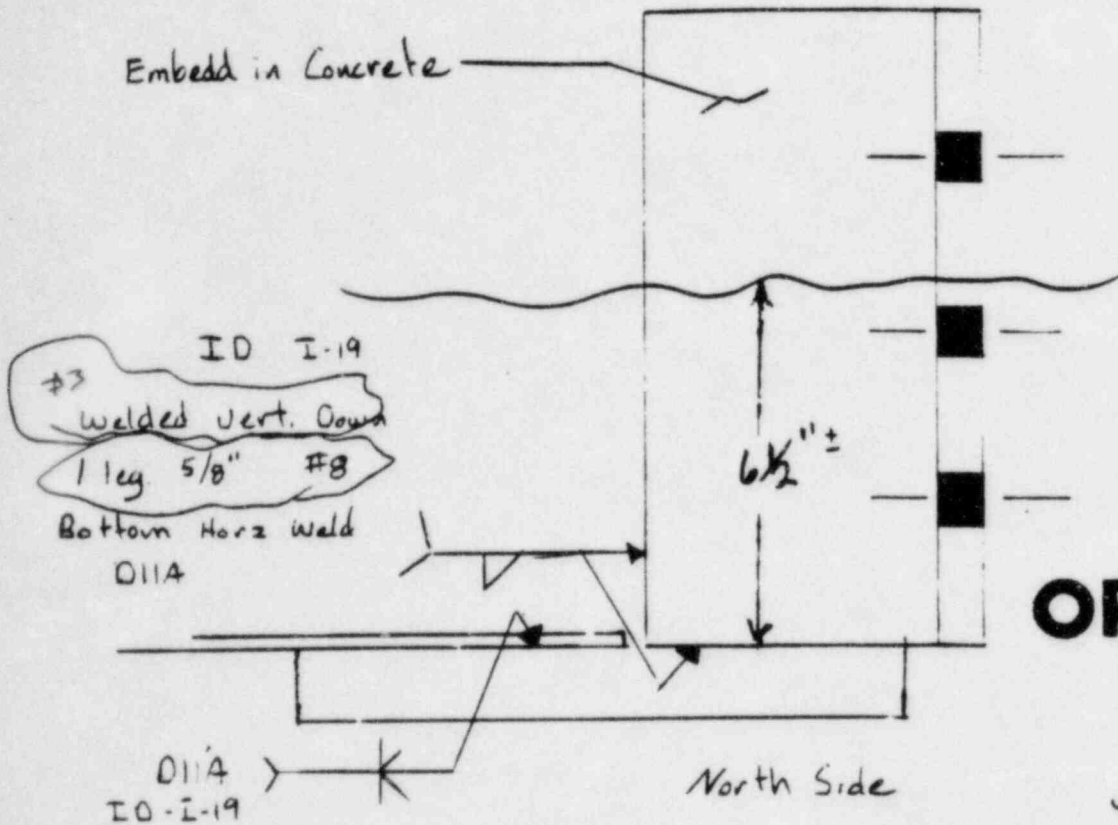 Embedd in Concrete
ID I-19
#3
Welded Vert. Down
1 leg. 5/8" #8
Bottom Horz Weld
D11A
6½" ±
D11A
ID-I-19
North Side